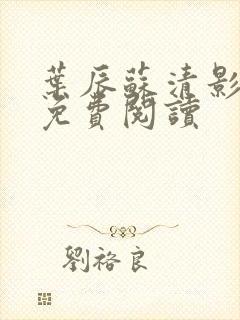 葉辰蘇清影
免費閱讀
劉裕良